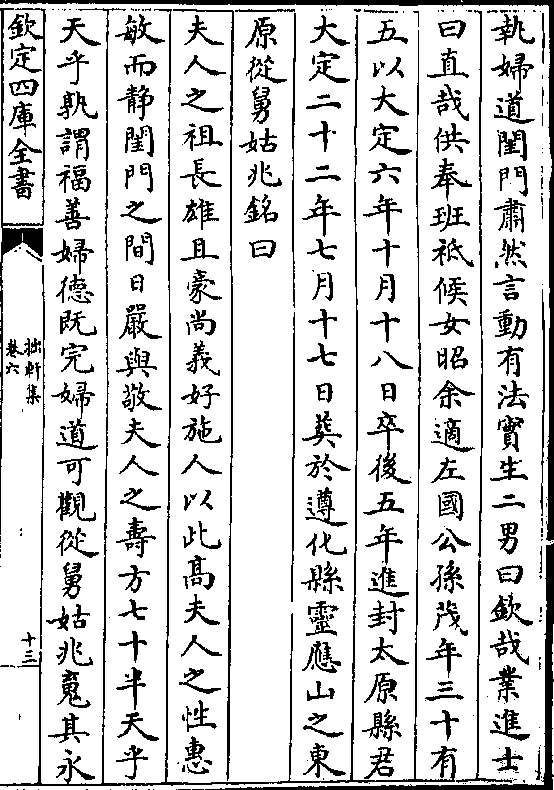 執婦道閨門肅然言動有法實生二男曰欽哉業進士
曰直哉供奉班祗候女昭余適左國公孫茂年三十有
五以大定六年十月十八日卒後五年進封太原縣君
大定二十二年七月十七日葬於遵化縣靈應山之東
原從舅姑兆銘曰
夫人之祖長雄且豪尚義好施人以此高夫人之性惠
敏而静閨門之間日嚴與敬夫人之壽方七十半天乎
天乎孰謂福善婦德既完婦道可觀從舅姑兆寃其永
欽定四庫全書
拙軒集
卷六
十三